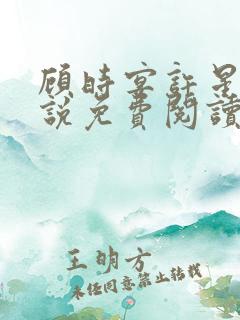 顾时宴許星
說免費閱讀
王明方
未经同意禁止转载